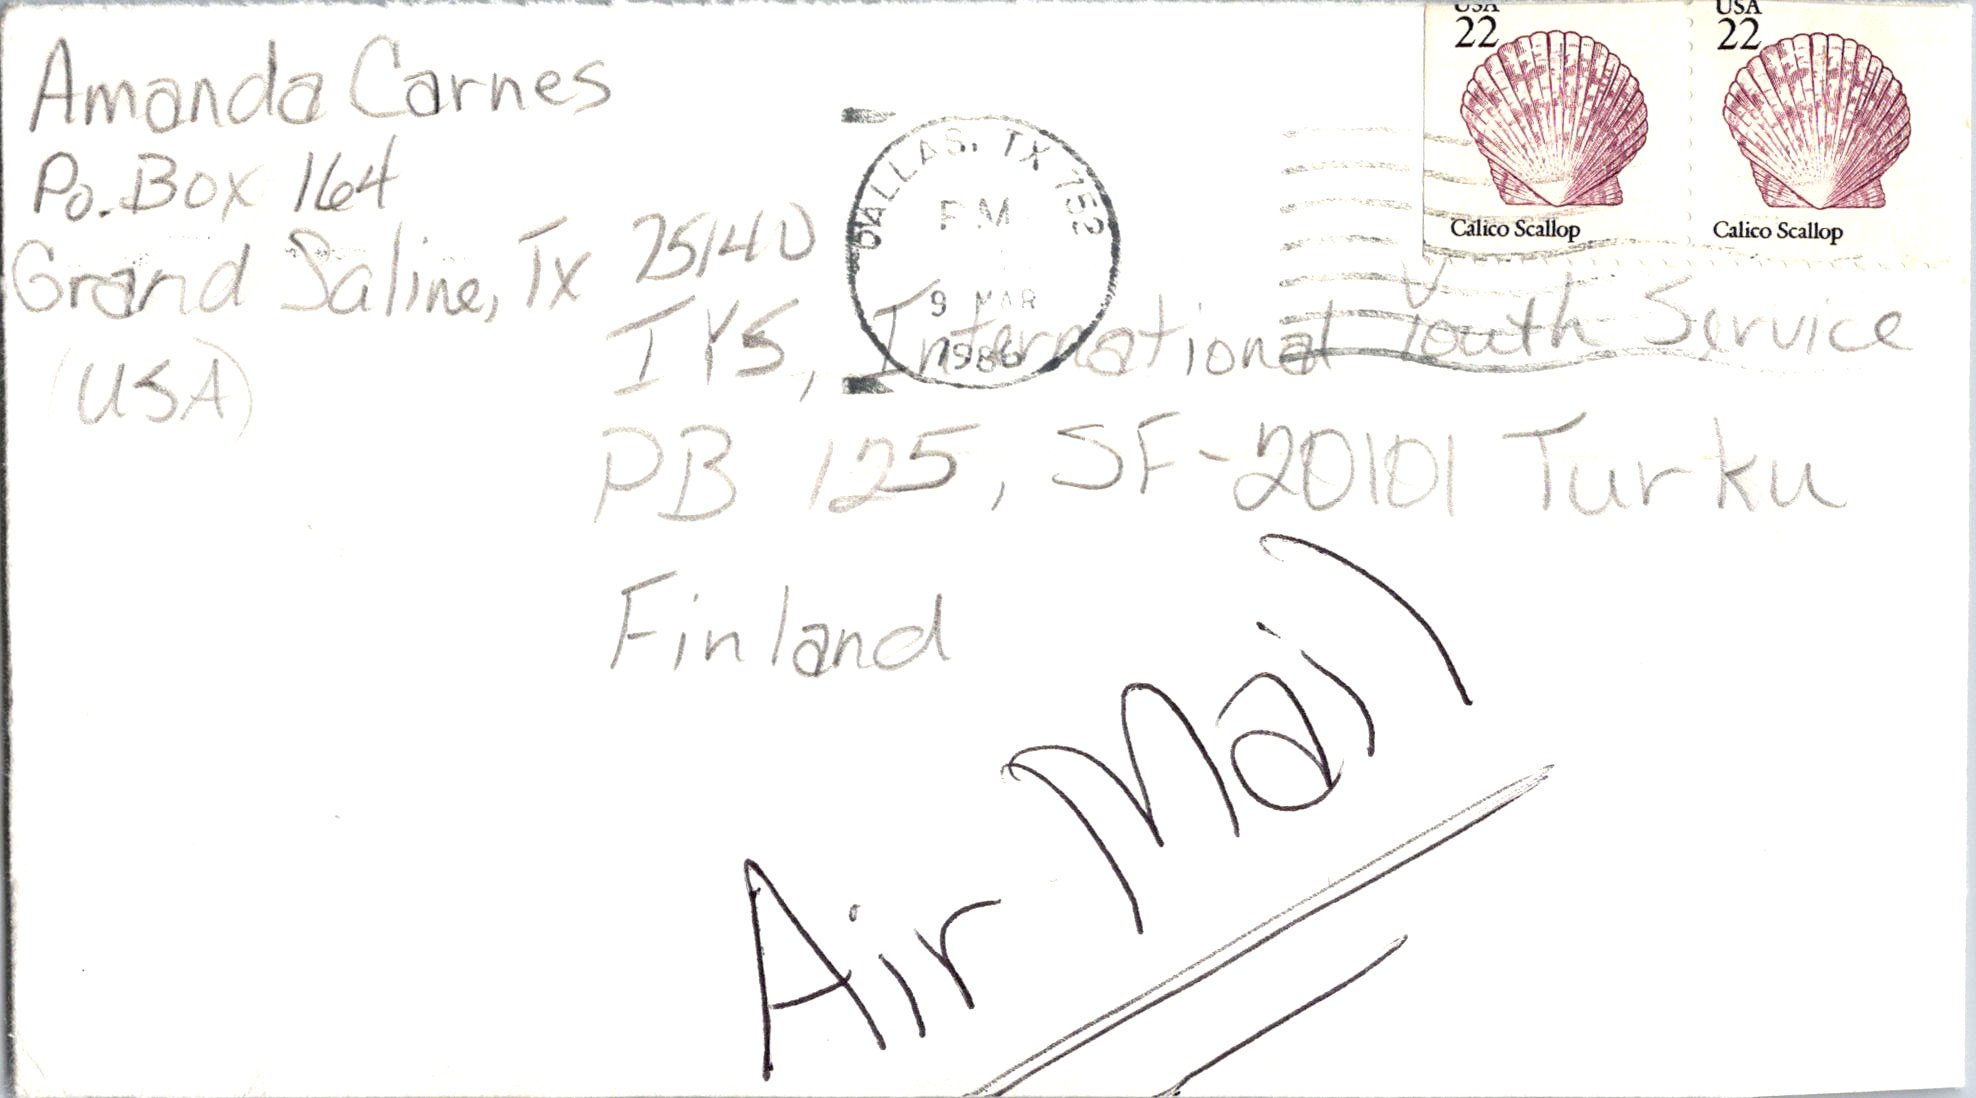 Amanda Carnes
Po. Box 164
Grand Saline, Tx 75140
(USA)
USA
22
Calico Scallop
USA
22
Calico Scallop
DALLAS, TX 752
PM
9 MAR
1986
IYS, International Youth Service
PB 125, SF-20101 Turku
Finland
Air Mail